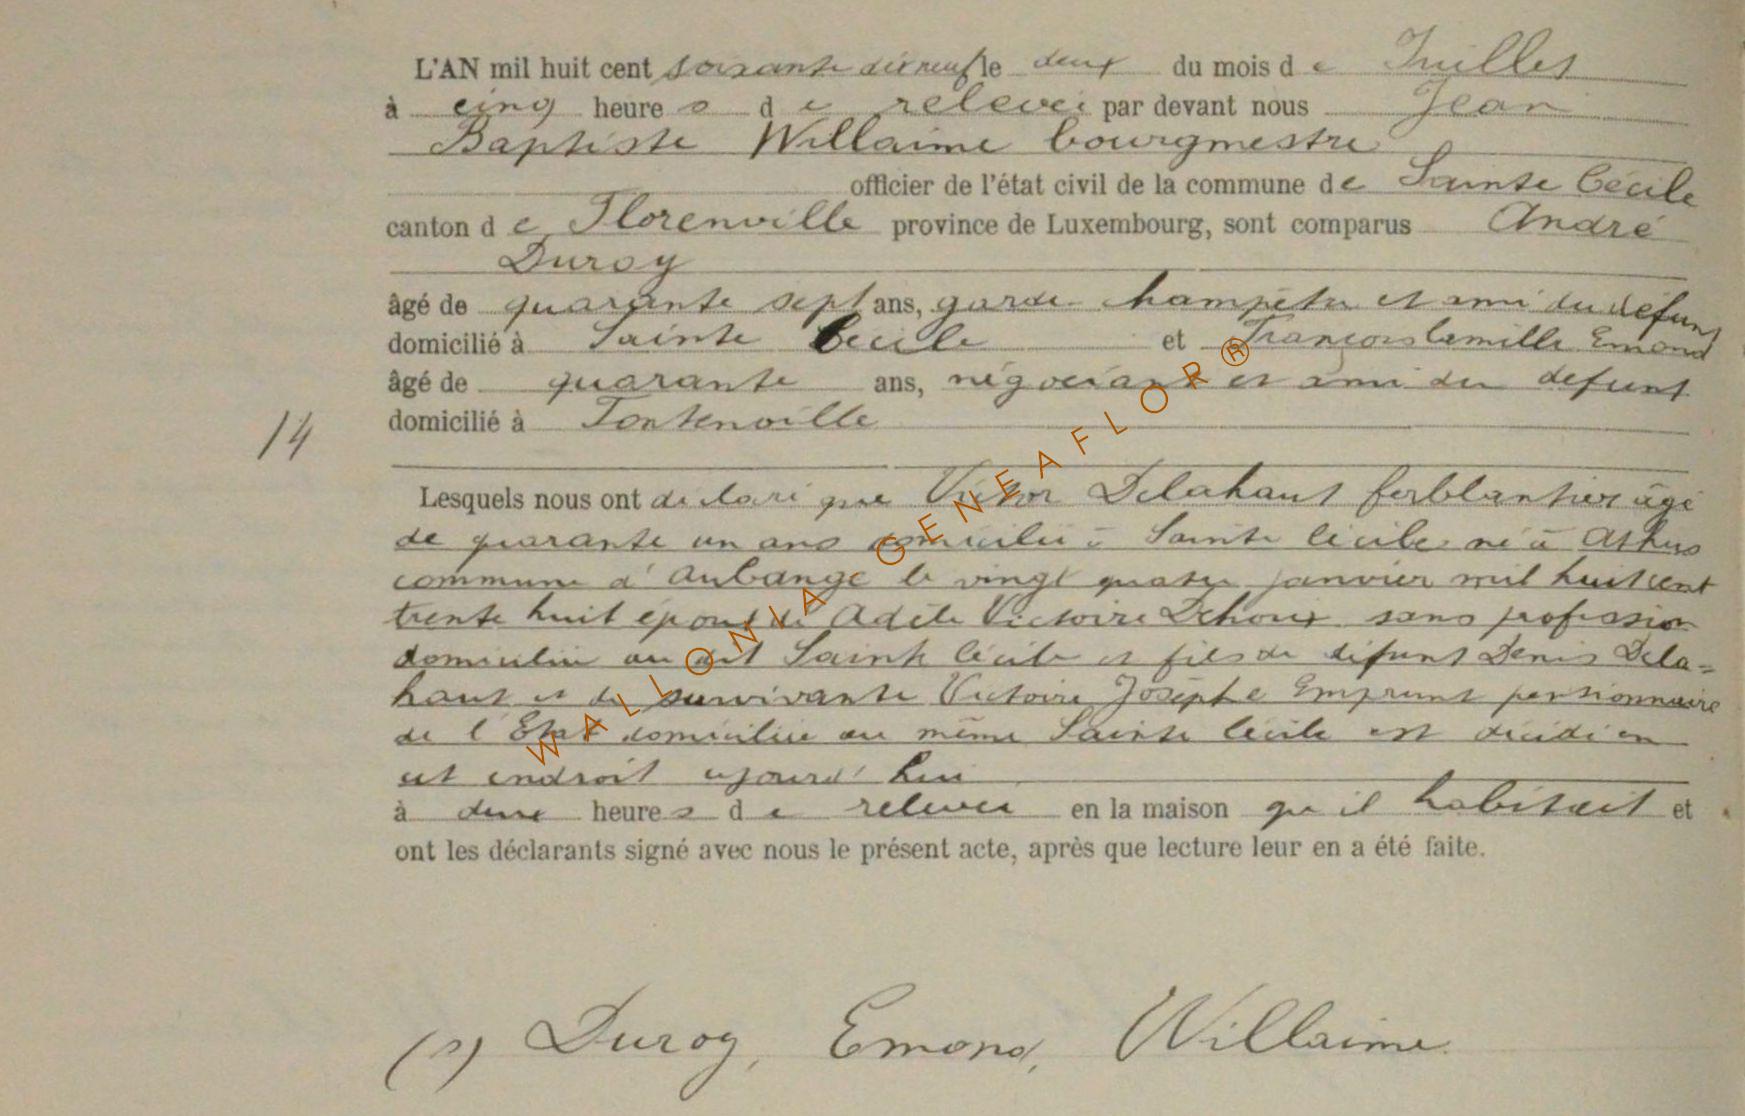 L'AN mil huit cent soixante dix neuf le deux du mois de Juillet
à cinq heures de relevée par devant nous Jean
Baptiste Willaime bourgmestre
officier de l'état civil de la commune de Sainte Cécile
canton de Florenville province de Luxembourg, sont comparus André
Duroy
âgé de quarante sept ans, garde champêtre et ami du défunt
domicilié à Sainte Cécile et François Camille Emond
âgé de quarante ans, négociant et ami du defunt
domicilié à Fontenoille
14
Lesquels nous ont déclaré que Victor Delahaut ferblantier âgé
de quarante un ans domicilié à Sainte Cécile né à Athus
commune d'Aubange le vingt quatre janvier mil huit cent
trente huit époux de Adèle Victoire Dehoux sans profession
domiciliée au dit Sainte Cécile et fils de défunt Denis Dela=
haut et de survivante Victoire Josèphe Emprunt pensionnaire
de l'Etat domiciliée au même Sainte Cécile est décédé en
cet endroit ajourd'hui
à deux heures de relevée en la maison qu'il habitait et
ont les déclarants signé avec nous le présent acte, après que lecture leur en a été faite.
(s) Duroy, Emond, Willaime
WALLONIA GENEAFLOR®